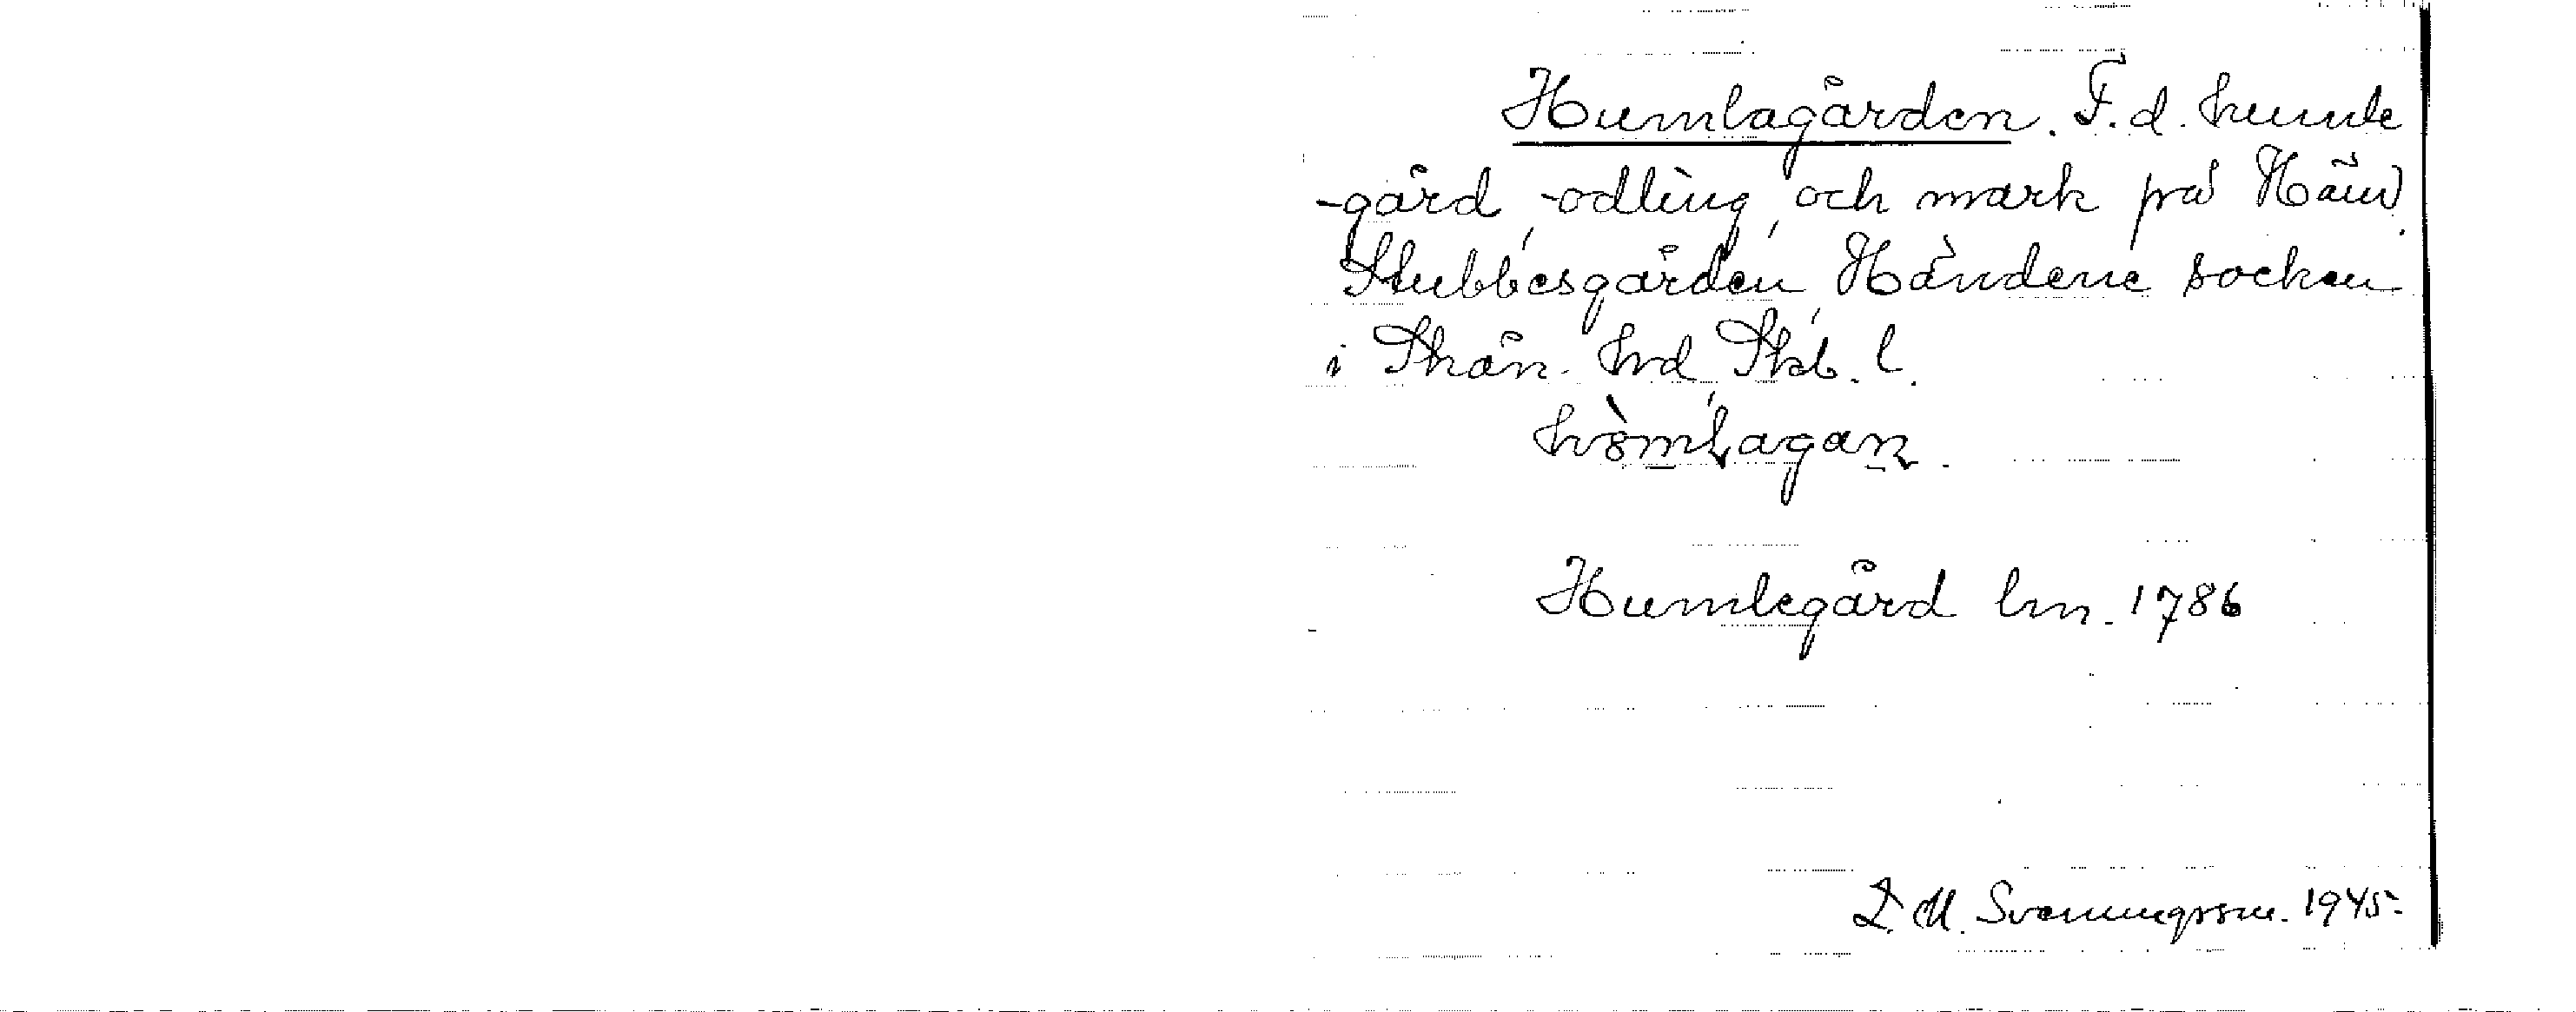 Humlagården. F.d. humle
-gård, -odling, och mark på Händ.
Stubbesgården, Händene socken
i Skån. hrd, Skb. l.
Humlegård lm. 1786
D. M. Svenningsson. 1945.